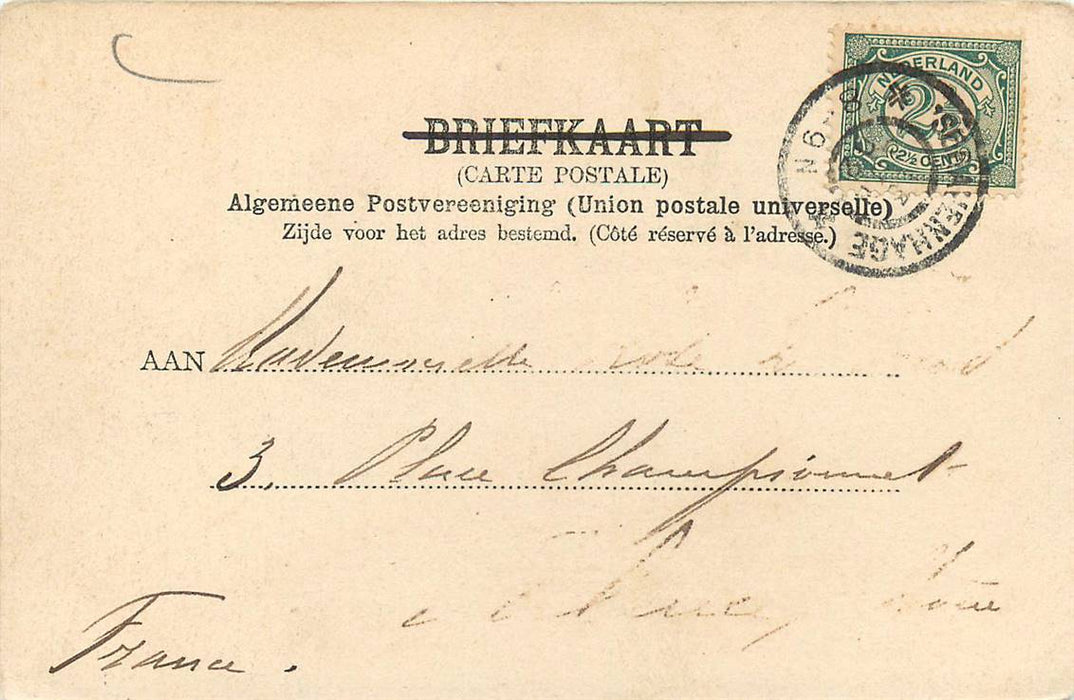 NEDERLAND
2½
(2½ CENT)
'S GRAVENHAGE
BRIEFKAART
(CARTE POSTALE)
Algemeene Postvereeniging (Union postale universelle)
Zijde voor het adres bestemd. (Côté réservé à l'adresse.)
AAN Mademoiselle
3, Place Championnet
France.